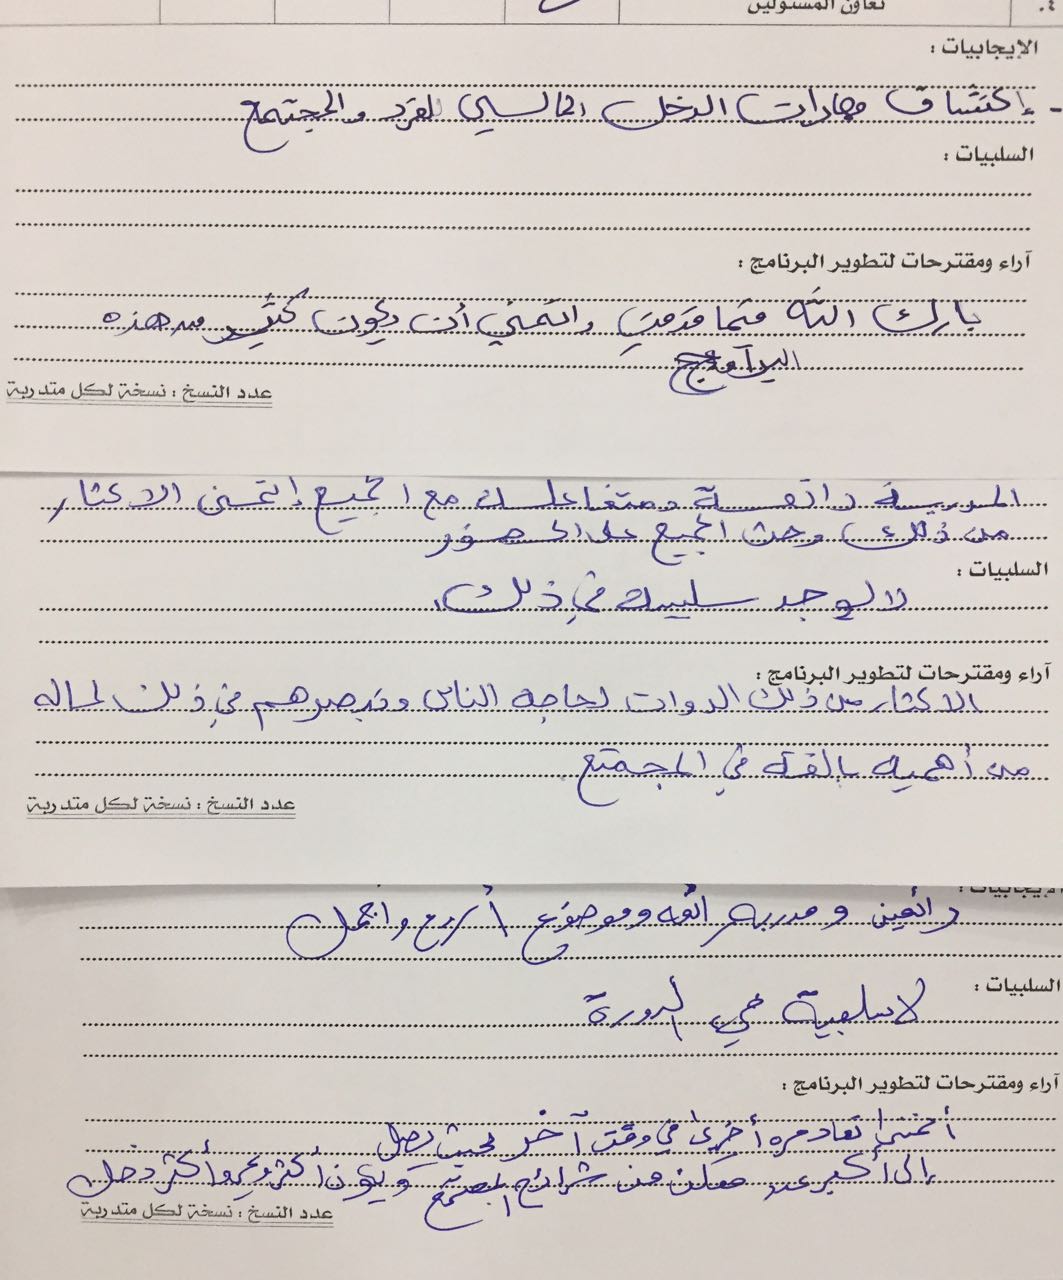 ٤. تعاون المسئولين
الإيجابيات :
- إكتشاف مهارات الدخل المالي للفرد والمجتمع
السلبيات :
آراء ومقترحات لتطوير البرنامج :
بارك الله فيما قدمت واتمنى أن يكون كثير من هذه
البرامج
عدد النسخ : نسخة لكل متدربة
المدربة رائعة ومتفاعلة مع الجميع إتمنى الاكثار
من ذلك وحث الجميع على الحضور
السلبيات :
لا يوجد سلبية في ذلك.
آراء ومقترحات لتطوير البرنامج :
الاكثار من ذلك الدورات لحاجه الناس وتبصرهم في ذلك لماله
من أهميه بالغة في المجتمع
عدد النسخ : نسخة لكل متدربة
الإيجابيات :
رائعين ومدربه رائعه وموضوع أروع واجمل
السلبيات :
لا سلبية في الدورة
آراء ومقترحات لتطوير البرنامج :
أتمنى تعاد مره أخرى في وقت آخر بحيث يصل
إلى أكبر عدد ممكن من شرائح المجتمع ويكون أكثر وأكثر دخل
عدد النسخ : نسخة لكل متدربة